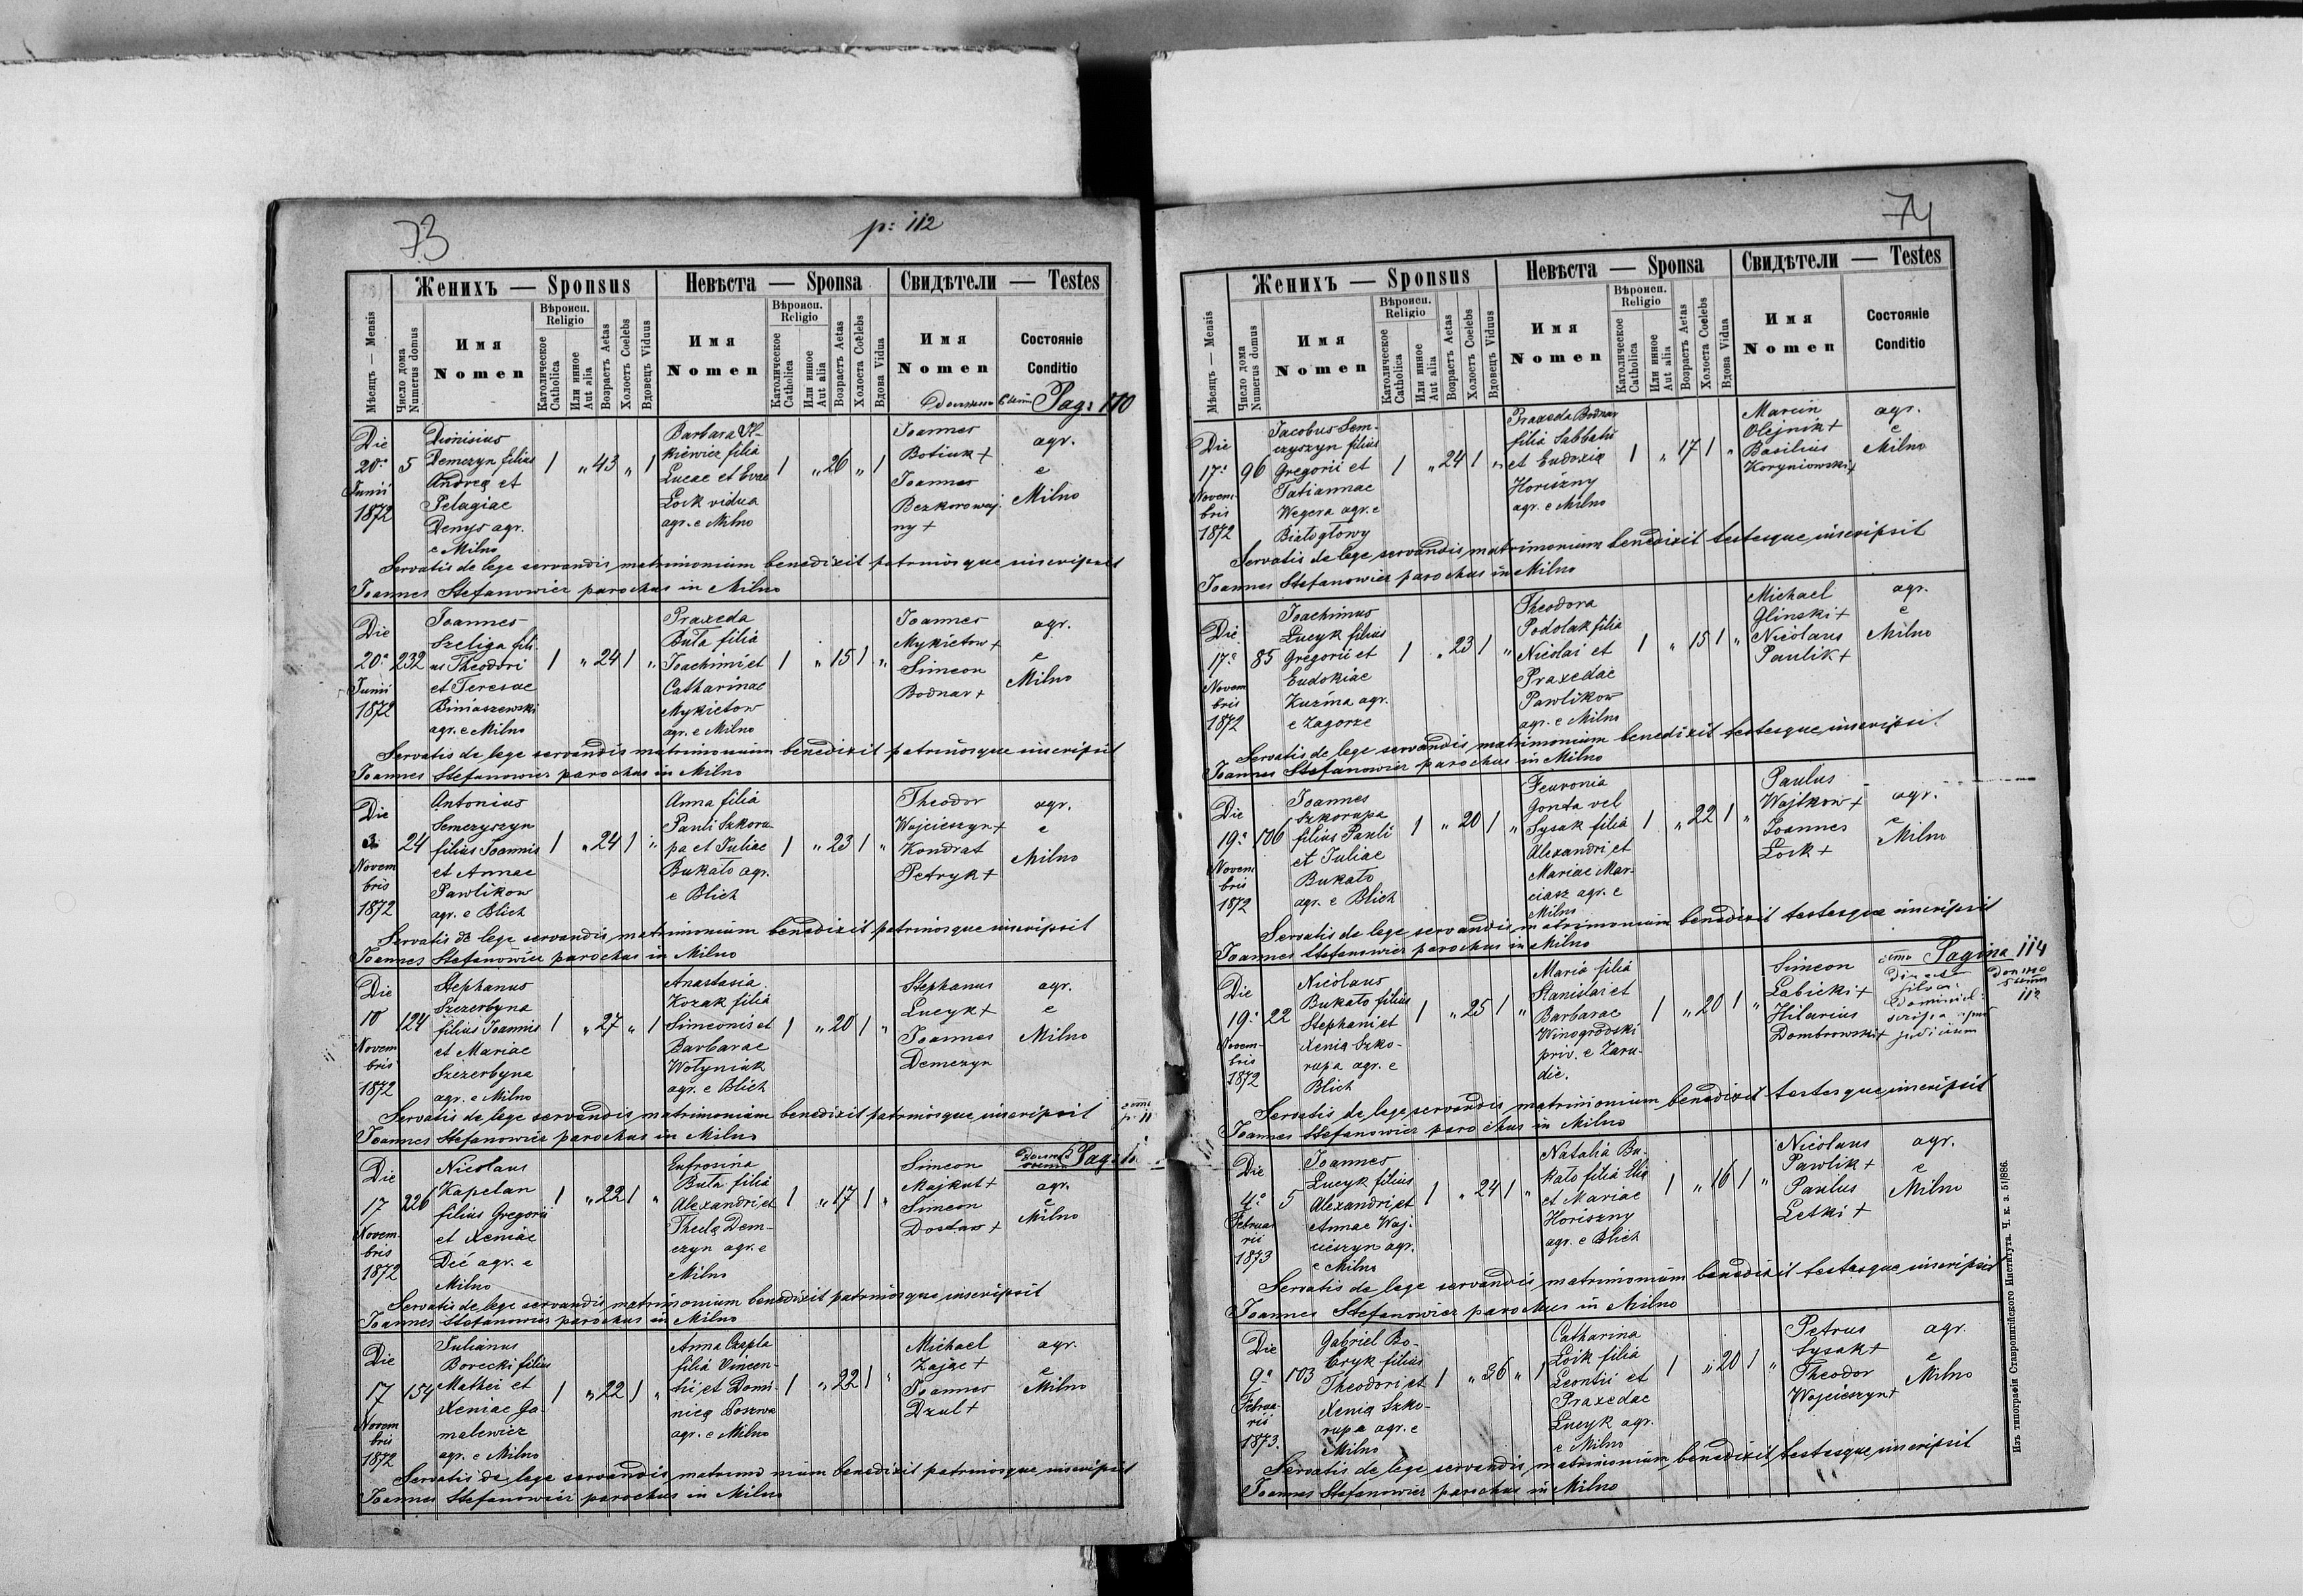 73
p: 112
Женихъ — Sponsus
Невѣста — Sponsa
Свидѣтели — Testes
Мѣсяцъ — Mensis
Число дома
Numerus domus
Имя
Nomen
Вѣроисп.
Religio
Католическое
Catholica
Или инное
Aut alia
Возрастъ Aetas
Холостъ Coelebs
Вдовецъ Viduus
Имя
Nomen
Вѣроисп.
Religio
Католическое
Catholica
Или инное
Aut alia
Возрастъ Aetas
Холоста Coelebs
Вдова Vidua
Имя
Nomen
Состояніе
Conditio
Pag: 110
Die
20ª
Junii
1872
5
Dionisius
Demczyn filius
Andreą et
Pelagiae
Denys agr.
e Milno
1 „ 43 „ 1
Barbara
kiewicz filia
Lucae et Evae
Łoik vidua
agr. e Milno
1 „ 26 „ 1
Joannes
Botiuk +
Joannes
Bezkorowaj-
ny +
agr.
e
Milno
Servatis de lege servandis matrimonium benedixit patrinosque inscripsit
Joannes Stefanowicz parochus in Milno
Die
20ª
Junii
1872
232
Joannes
Szeliga fili-
us Theodori
et Teresae
Biniaszewski
agr. e Milno
1 „ 24 1 „
Praxeda
Buła filia
Joachimi et
Catharinae
Mykietow
agr. e Milno
1 „ 15 1 „
Joannes
Mykietow +
Simeon
Bodnar +
agr.
e
Milno
Servatis de lege servandis matrimonium benedixit patrinosque inscripsit
Joannes Stefanowicz parochus in Milno
Die
3
Novem
bris
1872
24
Antonius
Semczyszyn
filius Joannis
et Annae
Pawlikow
agr. e Blich
1 „ 24 1 „
Anna filia
Pauli Szkoru-
pa et Juliae
Bukało agr.
e Blich
1 „ 23 1 „
Theodor
Wojcieszyn +
Kondrat
Petryk +
agr.
e
Milno
Servatis de lege servandis matrimonium benedixit patrinosque inscripsit
Joannes Stefanowicz parochus in Milno
Die
10
Novem
bris
1872
124
Stephanus
Szczerbyna
filius Joannis
et Mariae
Szczerbyna
agr. e Milno
1 „ 27 „ 1
Anastasia
Kozak filia
Simeonis et
Barbarae
Wołyniak
agr. e Blich
1 „ 20 1 „
Stephanus
Lucyk +
Joannes
Demczyn
agr.
e
Milno
Servatis de lege servandis matrimonium benedixit patrinosque inscripsit
Joannes Stefanowicz parochus in Milno
Die
17
Novem-
bris
1872
226
Nicolaus
Kapelan
filius Gregorii
et Xeniae
Dić agr. e
Milno
1 „ 22 1 „
Eufrosina
Buła filia
Alexandri et
Theclą Dem-
czyn agr. e
Milno
1 „ 17 1 „
Simeon
Majkut +
Simeon
Dosław +
agr.
e
Milno
Servatis de lege servandis matrimonium benedixit patrinosque inscripsit
Joannes Stefanowicz parochus in Milno
Die
17
Novem
bris
1872
154
Julianus
Borecki filius
Mathei et
Xeniae Ga-
malewicz
agr. e Milno
1 „ 22 1 „
Anna Czapla
filia Vincen-
tii et Domi-
nicą Poszwa
agr. e Milno
1 „ 22 1 „
Michael
Zając +
Joannes
Dzul +
agr.
e
Milno
Servatis de lege servandis matrimonium benedixit patrinosque inscripsit
Joannes Stefanowicz parochus in Milno
74
Женихъ — Sponsus
Невѣста — Sponsa
Свидѣтели — Testes
Мѣсяцъ — Mensis
Число дома
Numerus domus
Имя
Nomen
Вѣроисп.
Religio
Католическое
Catholica
Или инное
Aut alia
Возрастъ Aetas
Холостъ Coelebs
Вдовецъ Viduus
Имя
Nomen
Вѣроисп.
Religio
Католическое
Catholica
Или инное
Aut alia
Возрастъ Aetas
Холоста Coelebs
Вдова Vidua
Имя
Nomen
Состояніе
Conditio
Die
17ª
Novem-
bris
1872
96
Jacobus Sem-
czyszyn filius
Gregorii et
Tatiannae
Wegera agr. e
Białogłowy
1 „ 24 1 „
Praxeda Bodnar
filia Sabbatii
et Eudoxią
Horiszny
agr. e Milno
1 „ 17 1 „
Marcin
Olejnik +
Basilius
Koryniowski +
agr.
e
Milno
Servatis de lege servandis matrimonium benedixit testesque inscripsit
Joannes Stefanowicz parochus in Milno
Die
17ª
Novem
bris
1872
85
Joachimus
Lucyk filius
Gregorii et
Eudokiae
Kuźma agr.
e Zagorze
1 „ 23 1 „
Theodora
Podolak filia
Nicolai et
Praxedae
Pawlikow
agr. e Milno
1 „ 15 1 „
Michael
Glinski +
Nicolaus
Paulik +
agr.
e
Milno
Servatis de lege servandis matrimonium benedixit testesque inscripsit.
Joannes Stefanowicz parochus in Milno
Die
19ª
Novem
bris
1872
106
Joannes
Szkorupa
filius Pauli
et Juliae
Bukało
agr. e Blich
1 „ 20 1 „
Feuronia
Gonta vel
Sysak filia
Alexandri et
Mariae Mar-
ciasz agr. e
Milno
1 „ 22 1 „
Paulus
Wojtkow +
Joannes
Łoik +
agr.
e
Milno
Servatis de lege servandis matrimonium benedixit testesque inscripsit
Joannes Stefanowicz parochus in Milno
Die
19ª
Novem-
bris
1872
22
Nicolaus
Bukało filius
Stephani et
Xenią Szko-
rupa agr. e
Blich
1 „ 25 1 „
Maria filia
Stanislai et
Barbarae
Winogrodski
priv. e Zaru-
die.
1 „ 20 1 „
Simeon
Łabicki +
Hilarius
Dombrowski +
Pagina 114
Servatis de lege servandis matrimonium benedixit testesque inscripsit
Joannes Stefanowicz parochus in Milno
Die
4ª
Februa
rii
1873
5
Joannes
Lucyk filius
Alexandri et
Annae Woj-
cieszyn agr.
e Milno
1 „ 24 1 „
Natalia Bu-
kało filia Elią
et Mariae
Horiszny
agr. e Blich
1 „ 16 1 „
Nicolaus
Pawlik +
Paulus
Letki +
agr.
e
Milno
Servatis de lege servandis matrimonium benedixit testesque inscripsit
Joannes Stefanowicz parochus in Milno
Die
9ª
Februa-
rii
1873.
103
Gabriel Bo-
filius
Theodori et
Xenią Szko-
rupa agr. e
Milno
1 „ 36 „ 1
Catharina
Łoik filia
Leontii et
Praxedae
Lucyk agr.
e Milno
1 „ 20 1 „
Petrus
Sysak +
Theodor
Wojcieszyn +
agr.
e
Milno
Servatis de lege servandis matrimonium benedixit testesque inscripsit
Joannes Stefanowicz parochus in Milno
Изъ типографіи Ставропигійского Института. Ч. к. з. 51/886.